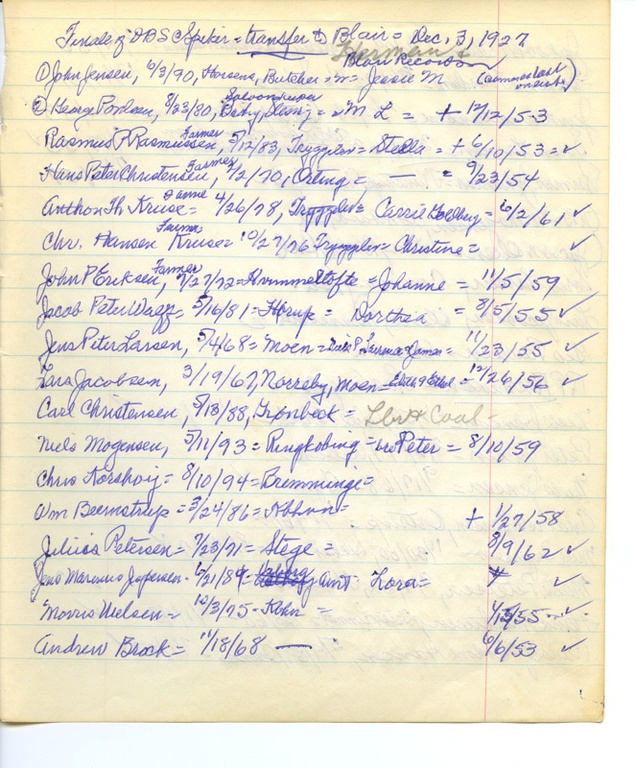 Finale of DBS Spiker = transfer to Blair = Dec. 3, 1927
Herman &
Blair Records
① John Jensen, 6/3/90, Horsens, Butcher = w = Jessie M (
Saloonkeeper
② George Poulsen, 8/23/80, = M L = + 12/12/53
Farmer
Rasmus P Rasmussen, 5/12/83, Tryggelev = Stella = + 6/10/53 = ✓
Farmer
Hans Peter Christensen, 7/2/70, Orting = — = 9/23/54
Farmer
Anthon Th Kruse = 4/26/78, Tryggelev = Carrie Goldberg = 6/2/61 ✓
Farmer
Chr. Hansen Kruse = 10/27/76 Tryggelev = Christine = ✓
Farmer
John P Eriksen, 7/27/72 = Hummeltofte = Johanne = 11/5/59
Jacob Peter Wagg = 5/16/81 = Horup = Dorthea = 8/5/55 ✓
Jens Peter Larsen, 5/4/68 = Moen = = 11/23/55 ✓
Lars Jacobsen, 3/19/67, Norreby, Moen = = 12/26/56 ✓
Carl Christensen, 5/18/88, Gronbeck = Lbr & Coal -
Niels Mogensen, 5/11/93 = Ringkobing = Peter = 8/10/59
Chris Korshoj = 8/10/94 = Bremminge =
Wm Bernstrup = 3/24/86 = = + 1/27/58
Julius Petersen = 7/23/71 = Stege = 9/9/62 ✓
Jens Marinus Jeppesen - 6/21/89 = Amt Lora = ✓
Morris Nielsen = 10/3/75 - = 1/15/55 = ✓
Andrew Brock = 11/18/68 — 6/6/53 ✓